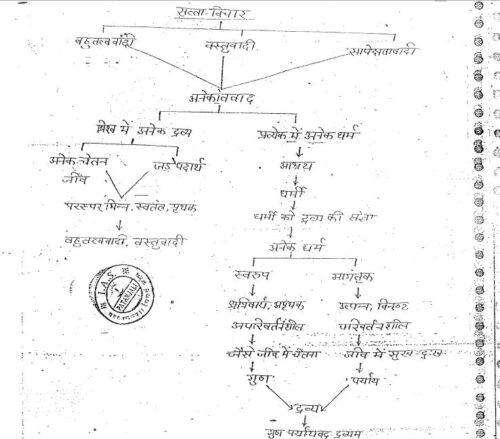 सत्ता-विचार
बहुतत्ववादी वस्तुवादी सापेक्षतावादी
अनेकांतवाद
विश्व में अनेक द्रव्य प्रत्येक में अनेक धर्म
अनेक चेतन जड़ पदार्थ आश्रय
जीव
धर्मी
परस्पर भिन्न, स्वतंत्र, पृथक
धर्मी को द्रव्य की संज्ञा
बहुतत्ववादी, वस्तुवादी
अनेक धर्म
स्वरूप आगंतुक
I.A.S.
PATANJALI
अपरिहार्य, आवश्यक उत्पन्न, विनष्ट
अपरिवर्तनशील परिवर्तनशील
जैसे जीव में चेतना जीव में सुख-दुःख
गुण पर्याय
द्रव्य
गुण पर्यायवद् द्रव्यम